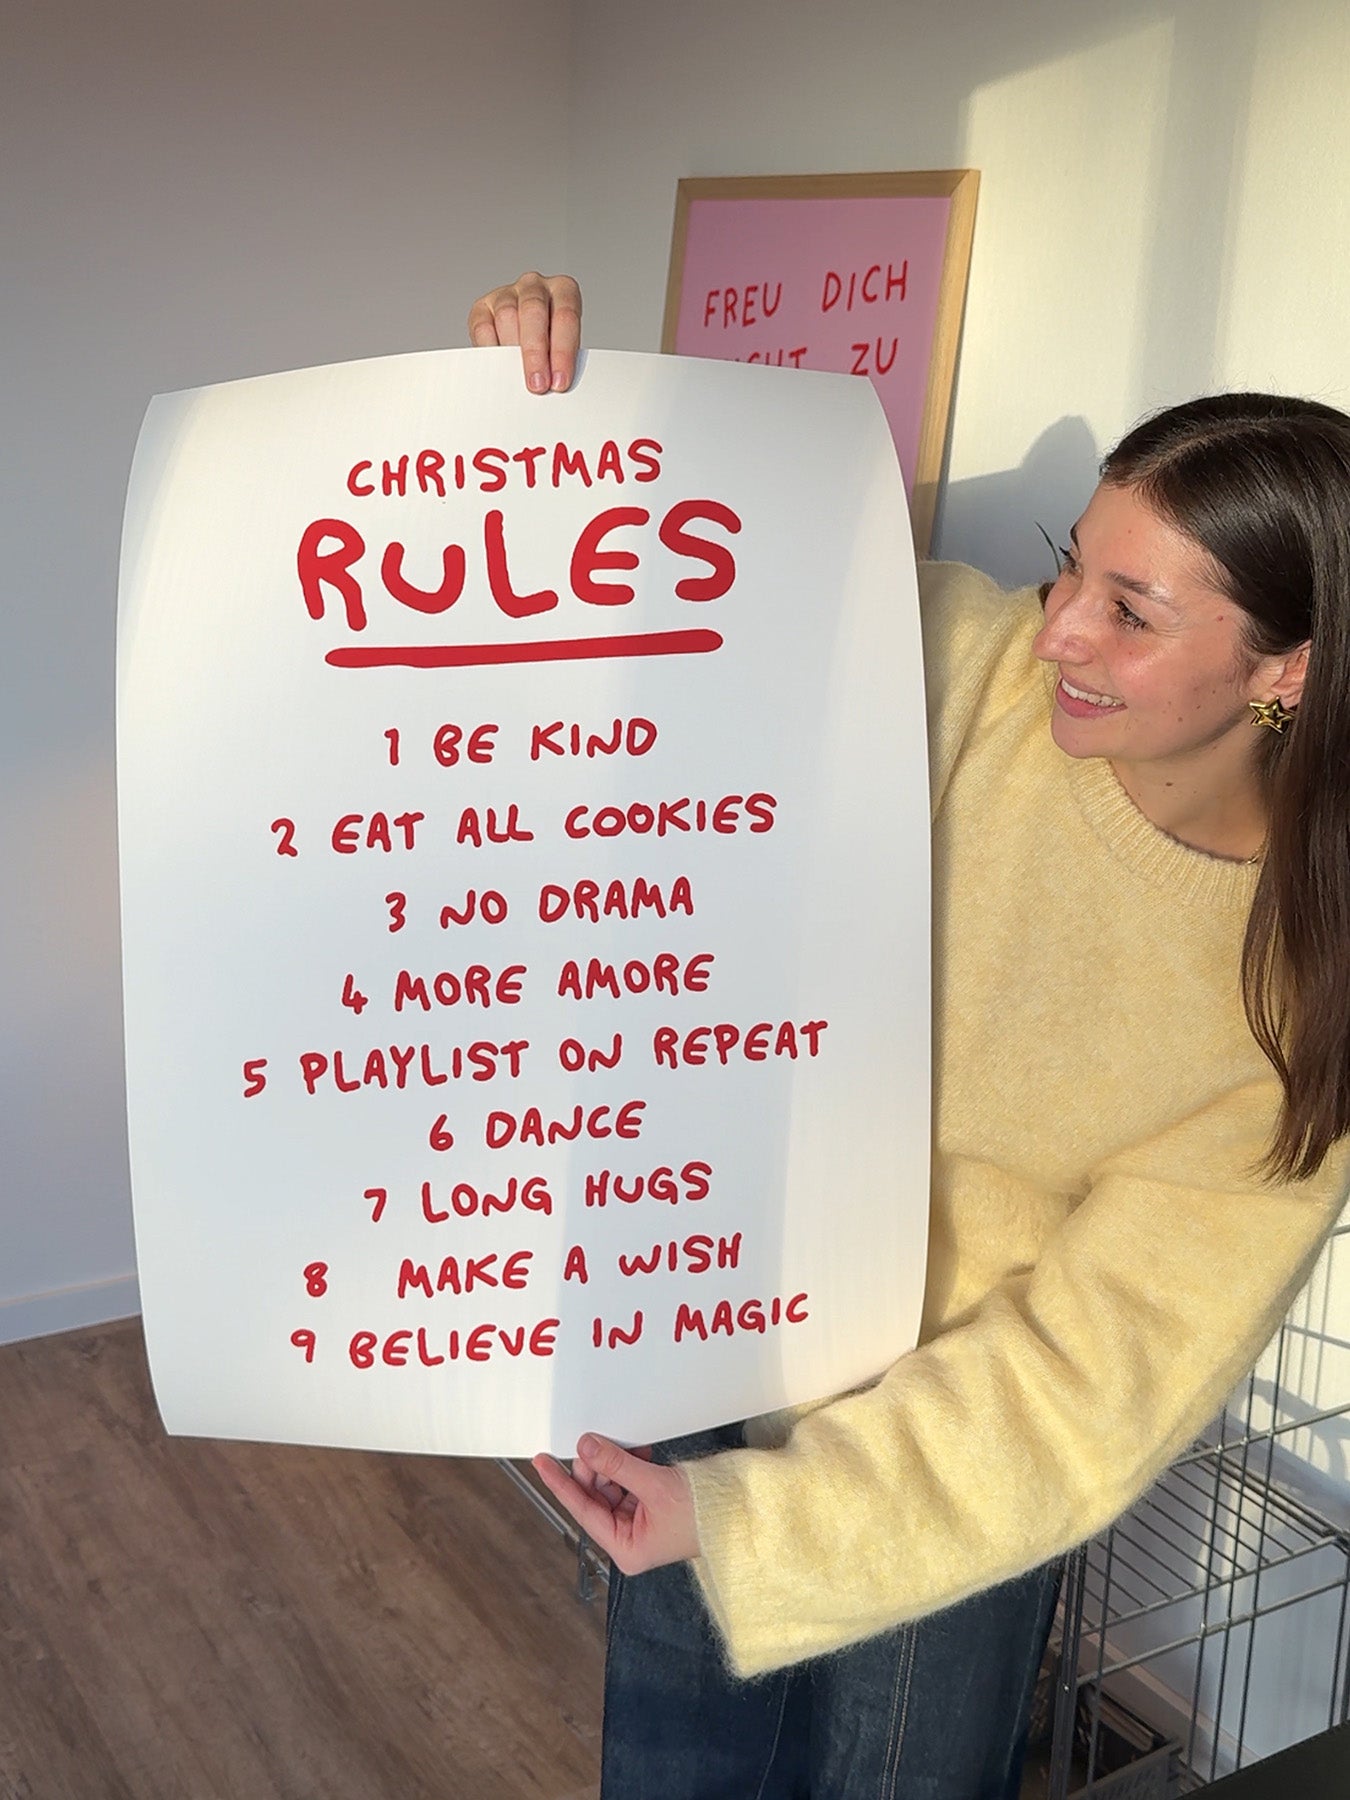 FREU DICH
ZU
CHRISTMAS
RULES
1 BE KIND
2 EAT ALL COOKIES
3 NO DRAMA
4 MORE AMORE
5 PLAYLIST ON REPEAT
6 DANCE
7 LONG HUGS
8 MAKE A WISH
9 BELIEVE IN MAGIC